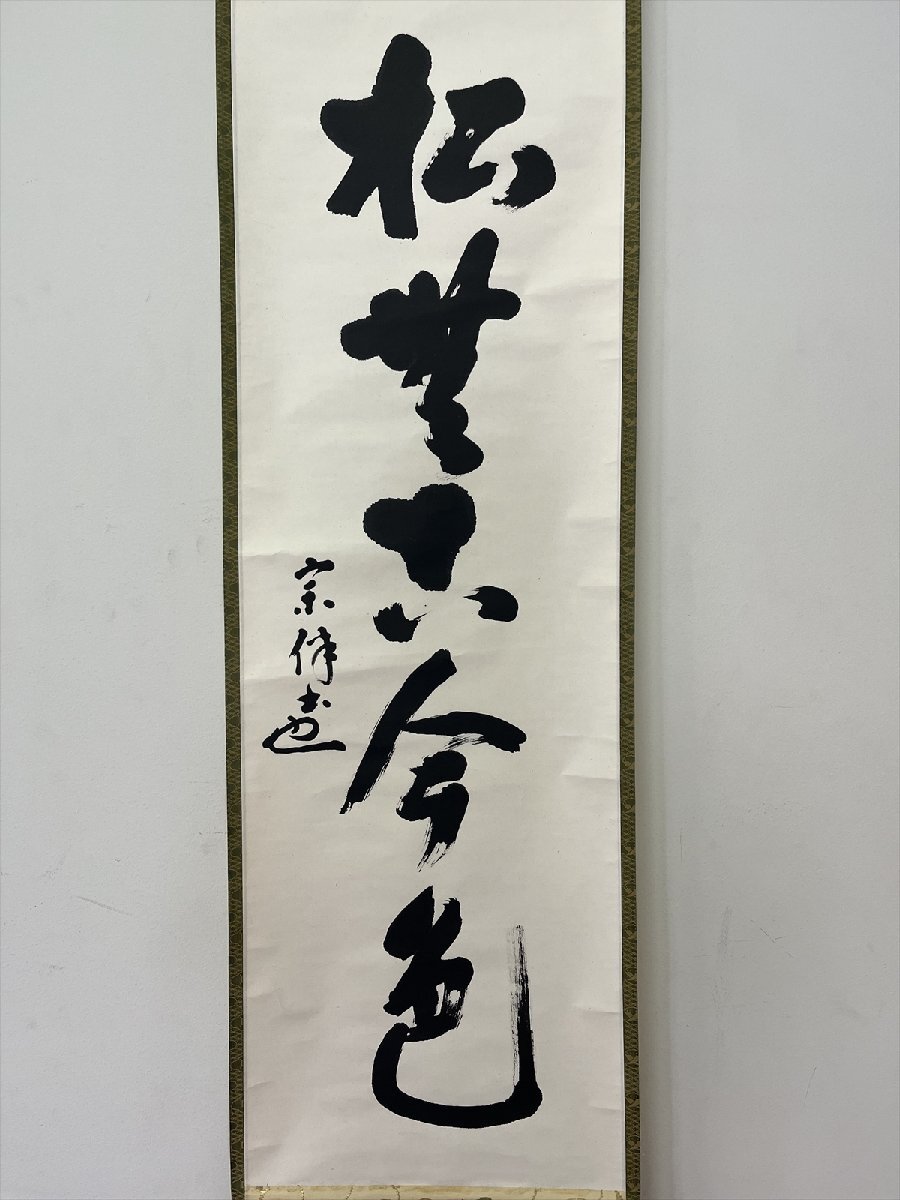 松無古今色
宗津書